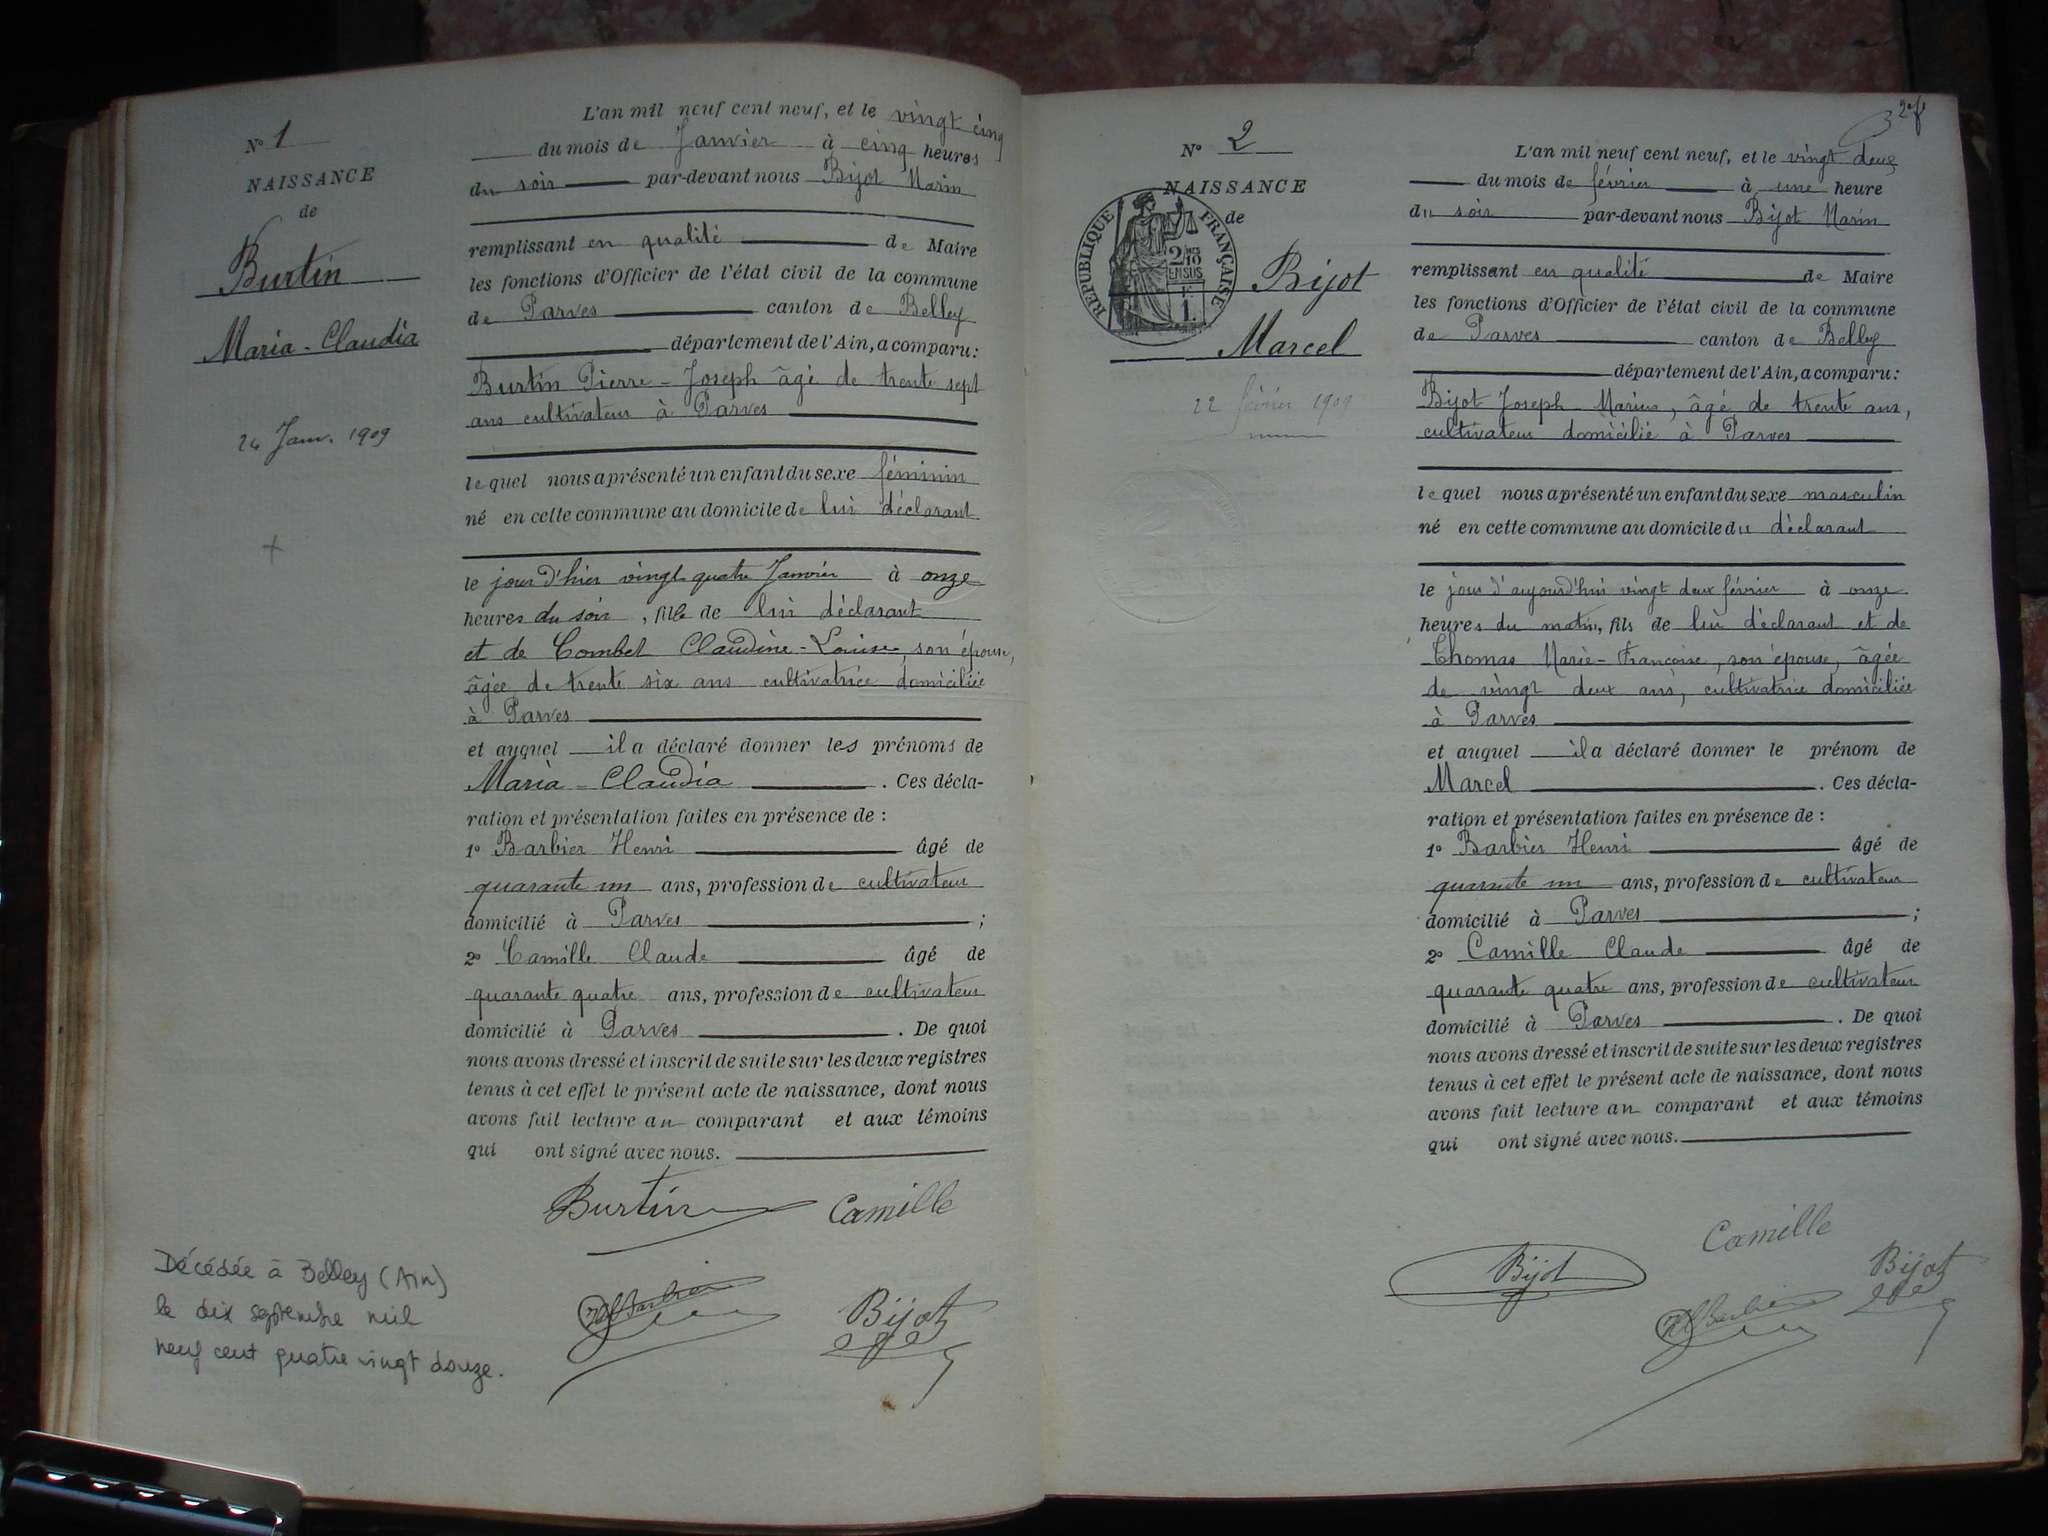 N° 1
NAISSANCE
de
Burtin
Maria-Claudia
24 Janv. 1909
L'an mil neuf cent neuf, et le vingt cinq
du mois de Janvier à cinq heures
du soir par-devant nous Bijot Marin
remplissant en qualité de Maire
les fonctions d'Officier de l'état civil de la commune
de Parves canton de Belley
département de l'Ain, a comparu :
Burtin Pierre-Joseph âgé de trente sept
ans cultivateur à Parves
lequel nous a présenté un enfant du sexe féminin
né en cette commune au domicile de lui déclarant
le jour d'hier vingt quatre Janvier à onze
heures du soir, fille de lui déclarant
et de Combet Claudine-Louise, son épouse,
âgée de trente six ans cultivatrice domiciliée
à Parves
et auquel il a déclaré donner les prénoms de
Maria-Claudia. Ces décla-
ration et présentation faites en présence de :
1° Barbier Henri âgé de
quarante un ans, profession de cultivateur
domicilié à Parves ;
2° Camille Claude âgé de
quarante quatre ans, profession de cultivateur
domicilié à Parves. De quoi
nous avons dressé et inscrit de suite sur les deux registres
tenus à cet effet le présent acte de naissance, dont nous
avons fait lecture au comparant et aux témoins
qui ont signé avec nous.
Burtin Camille
Barbier Bijot
Décédée à Belley (Ain)
le dix septembre mil
neuf cent quatre vingt douze.
N° 2
NAISSANCE
de
REPUBLIQUE FRANÇAISE
2/10 EN SUS
Bijot
Marcel
22 février 1909
L'an mil neuf cent neuf, et le vingt deux
du mois de février à une heure
du soir par-devant nous Bijot Marin
remplissant en qualité de Maire
les fonctions d'Officier de l'état civil de la commune
de Parves canton de Belley
département de l'Ain, a comparu :
Bijot Joseph-Marius, âgé de trente ans,
cultivateur domicilié à Parves
lequel nous a présenté un enfant du sexe masculin
né en cette commune au domicile du déclarant
le jour d'aujourd'hui vingt deux février à onze
heures du matin, fils de lui déclarant et de
Thomas Marie-Françoise, son épouse, âgée
de vingt deux ans, cultivatrice domiciliée
à Parves
et auquel il a déclaré donner le prénom de
Marcel. Ces décla-
ration et présentation faites en présence de :
1° Barbier Henri âgé de
quarante un ans, profession de cultivateur
domicilié à Parves ;
2° Camille Claude âgé de
quarante quatre ans, profession de cultivateur
domicilié à Parves. De quoi
nous avons dressé et inscrit de suite sur les deux registres
tenus à cet effet le présent acte de naissance, dont nous
avons fait lecture au comparant et aux témoins
qui ont signé avec nous.
Camille
Bijot Bijot
Barbier